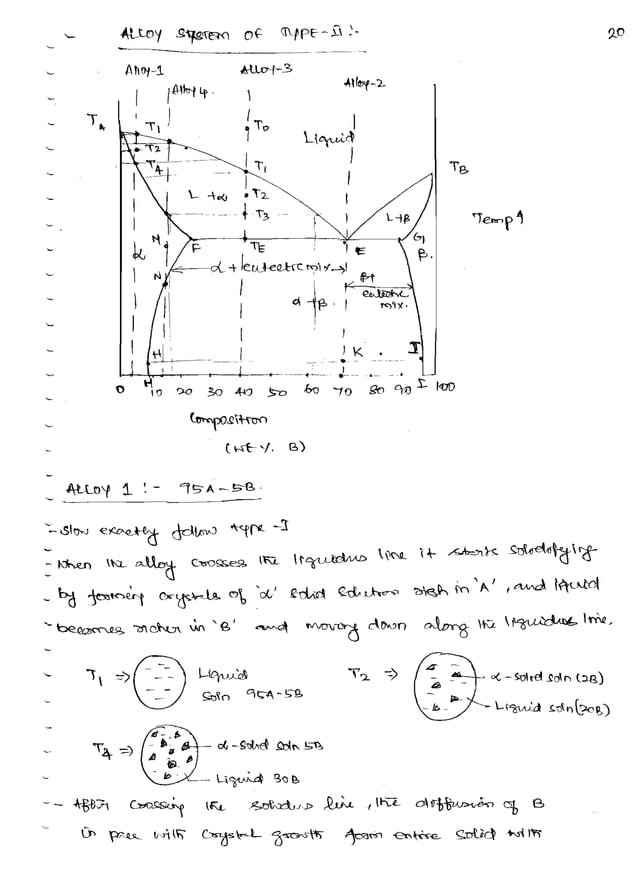 ALLOY SYSTEM OF TYPE-II :-
20
Alloy-1
Alloy 4.
Alloy-3
Alloy-2
TA
T1
T2
T4
T0
Liquid
T1
T2
T3
TB
L + α
L+β
Temp ↑
N
α
F
TE
E
G
β.
N
α + eutectic mix
β+
eutectic
mix.
α + β.
H
K
I
0
H
10
20
30
40
50
60
70
80
90
I
100
Composition
(WE Y. B)
ALLOY 1 :- 95A-5B.
- Slow exactly follow type -I
- When the alloy crosses the liquidus line it starts solidifying
by forming crystals of 'α' solid solution rich in 'A', and liquid
becomes richer in 'B' and moving down along the liquidus line.
T1 ⇒
Liquid
Soln 95A-5B
T2 ⇒
α-solid soln (2B)
Liquid soln (20B)
T4 ⇒
α-solid soln 5B
Liquid 30B
- After crossing the solidus line, the diffusion of B
in pace with crystal growth form entire solid with